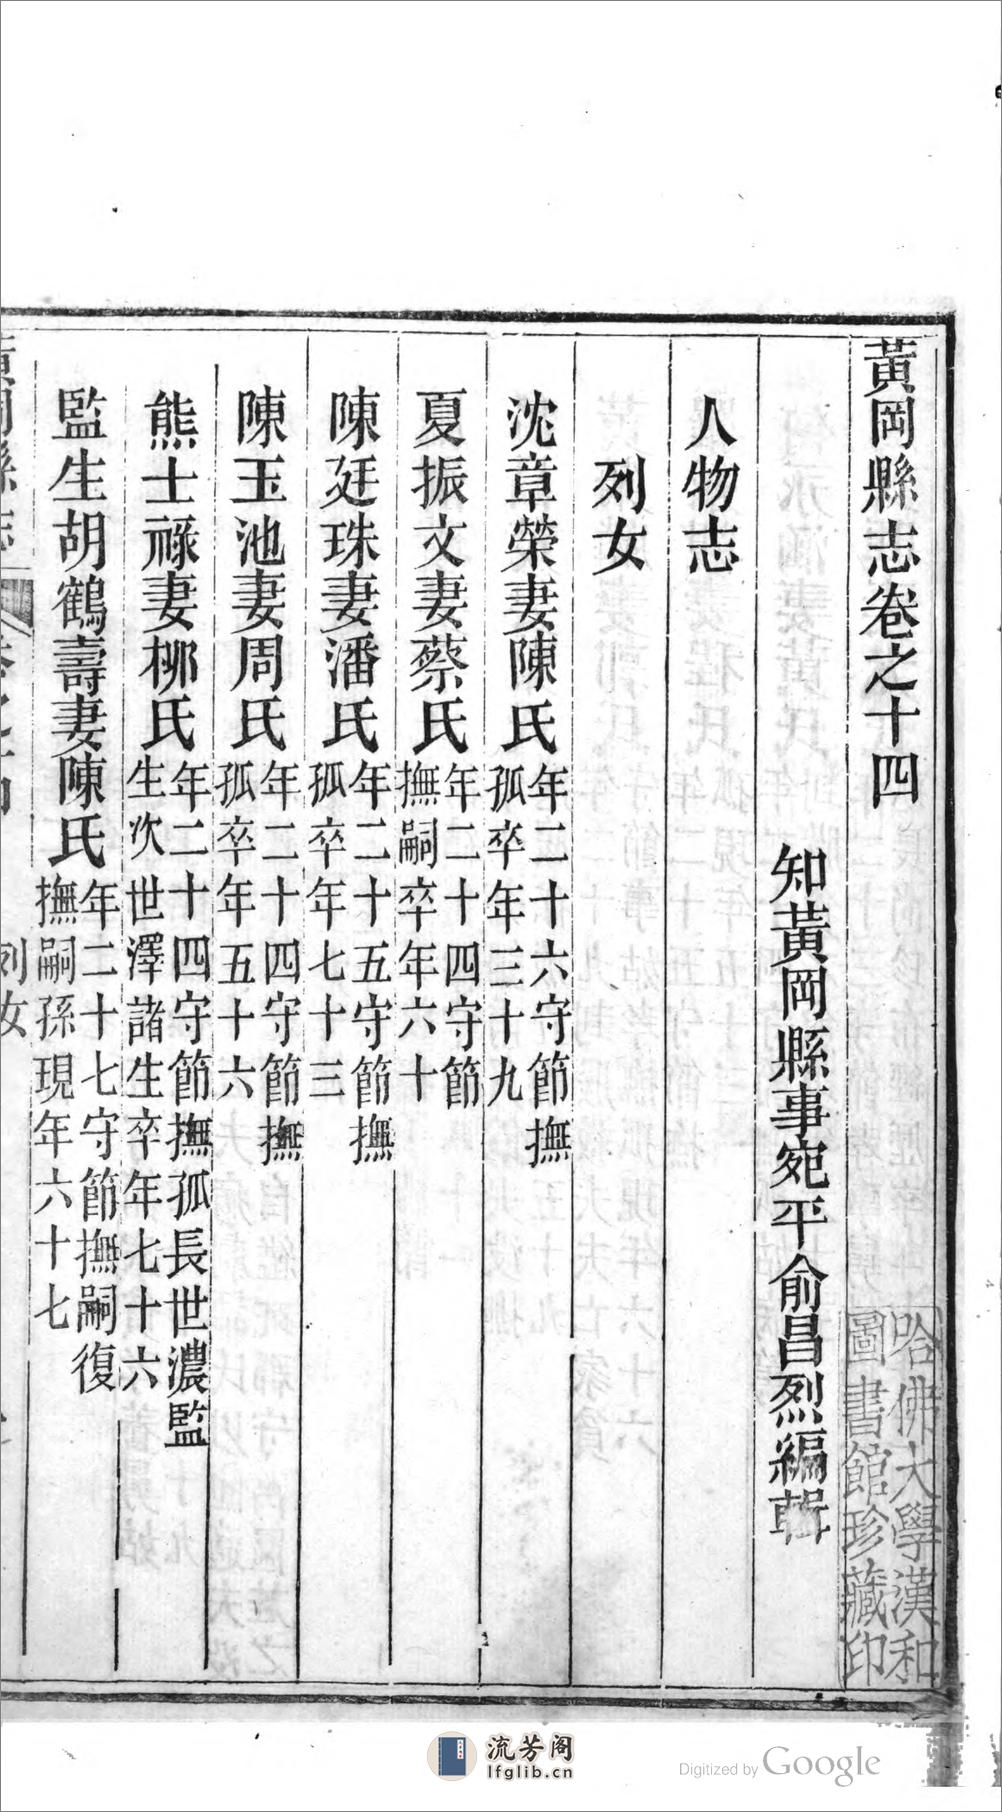 黃岡縣志卷之十四
知黃岡縣事宛平俞昌烈編輯
人物志
列女
沈章榮妻陳氏年二十六守節撫
孤卒年三十九
夏振文妻蔡氏年二十四守節
撫嗣卒年六十
陳廷珠妻潘氏年二十五守節撫
孤卒年七十三
陳玉池妻周氏年二十四守節撫
孤卒年五十六
熊士祿妻柳氏年二十四守節撫孤長世濃監
生次世澤諸生卒年七十六
監生胡鶴壽妻陳氏年二十七守節撫嗣復
撫嗣孫現年六十七
黃岡縣志
卷之十四
列女
哈佛大學漢和
圖書館珍藏印
流芳阁
lfglib.cn
Digitized by Google